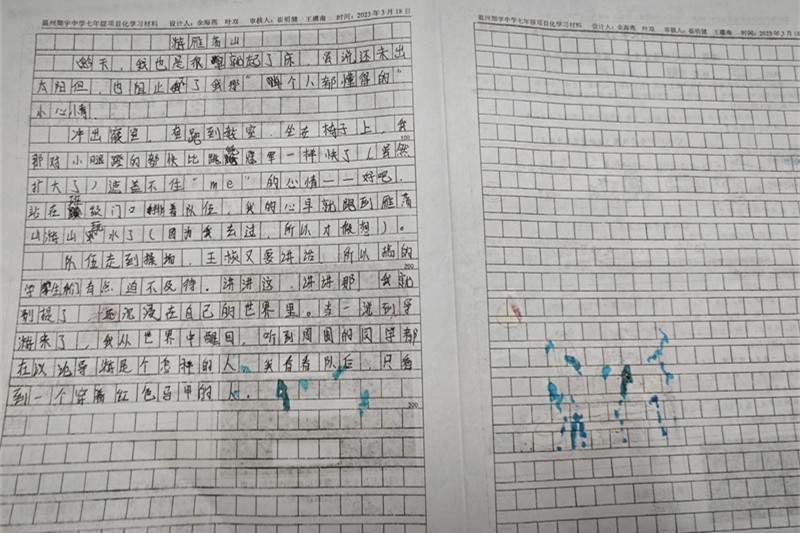 温州翔宇中学七年级项目化学习材料 设计人：金海燕 叶双 审核人：崔明健 王 时间：2023年3月18日
游雁荡山
天，我也是很早就起了床，虽说还未出
太阳但，也阻止了我那“懂个人都懂得的”
小心情。
冲出寝室，跑到教室，坐在椅子上，我
那对小腿蹬的都快比跳摩一样快了（虽然
扩大了）遮盖不住“me”的心情——好吧，
站在班级门口排着队伍，我的心早就跑到雁荡
山游山玩水了（因为我去过，所以才做想）。
100
队伍走到操场，王校又要讲话，所以搞的
200
学生们有点迫不及待。讲讲这，讲讲那，我就
别提了，沉浸在自己的世界里。当一说到导
游来了，我从世界中醒目，听到周围的同学都
在议论导游是个怎样的人，我看看以后，只看
到一个穿着红色马甲的人。
300
温州翔宇中学七年级项目化学习材料 设计人：金海燕 叶双 审核人：崔明健 王 时间：2023年3月18日